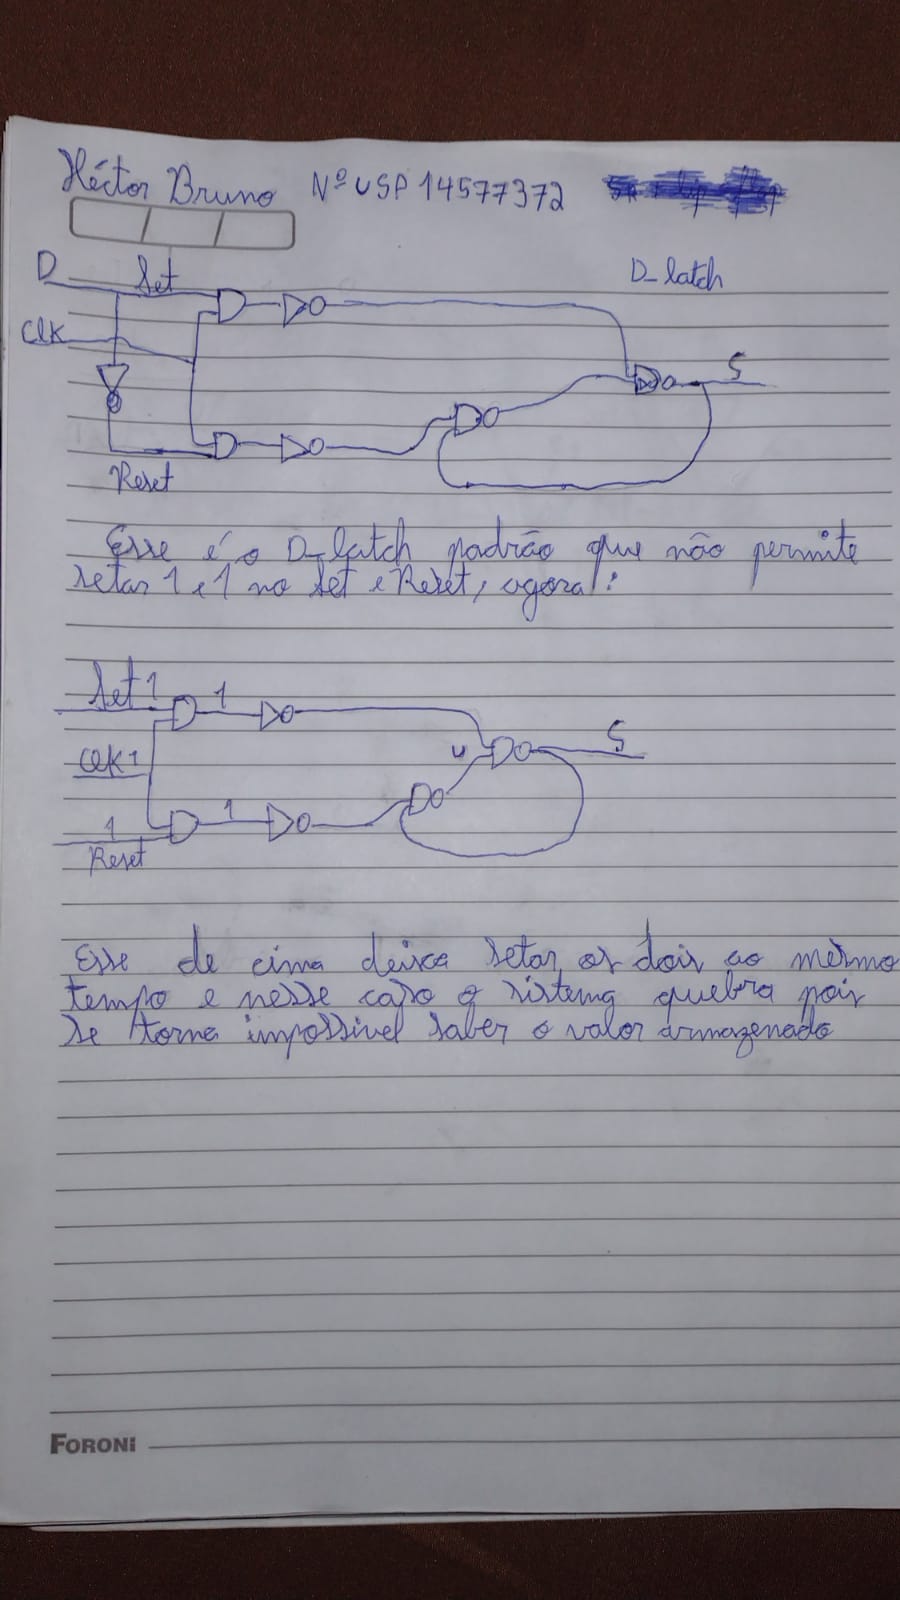 Héctor Bruno Nº USP 14577372
D Set D_latch
Clk
S
Reset
Esse é o D_latch padrão que não permite
setar 1 e 1 no Set e Reset, agora:
Set 1 1
S
Clk 1
1 1
Reset
Esse de cima deixa setar os dois ao mesmo
tempo e nesse caso o sistema quebra pois
se torna impossível saber o valor armazenado
FORONI